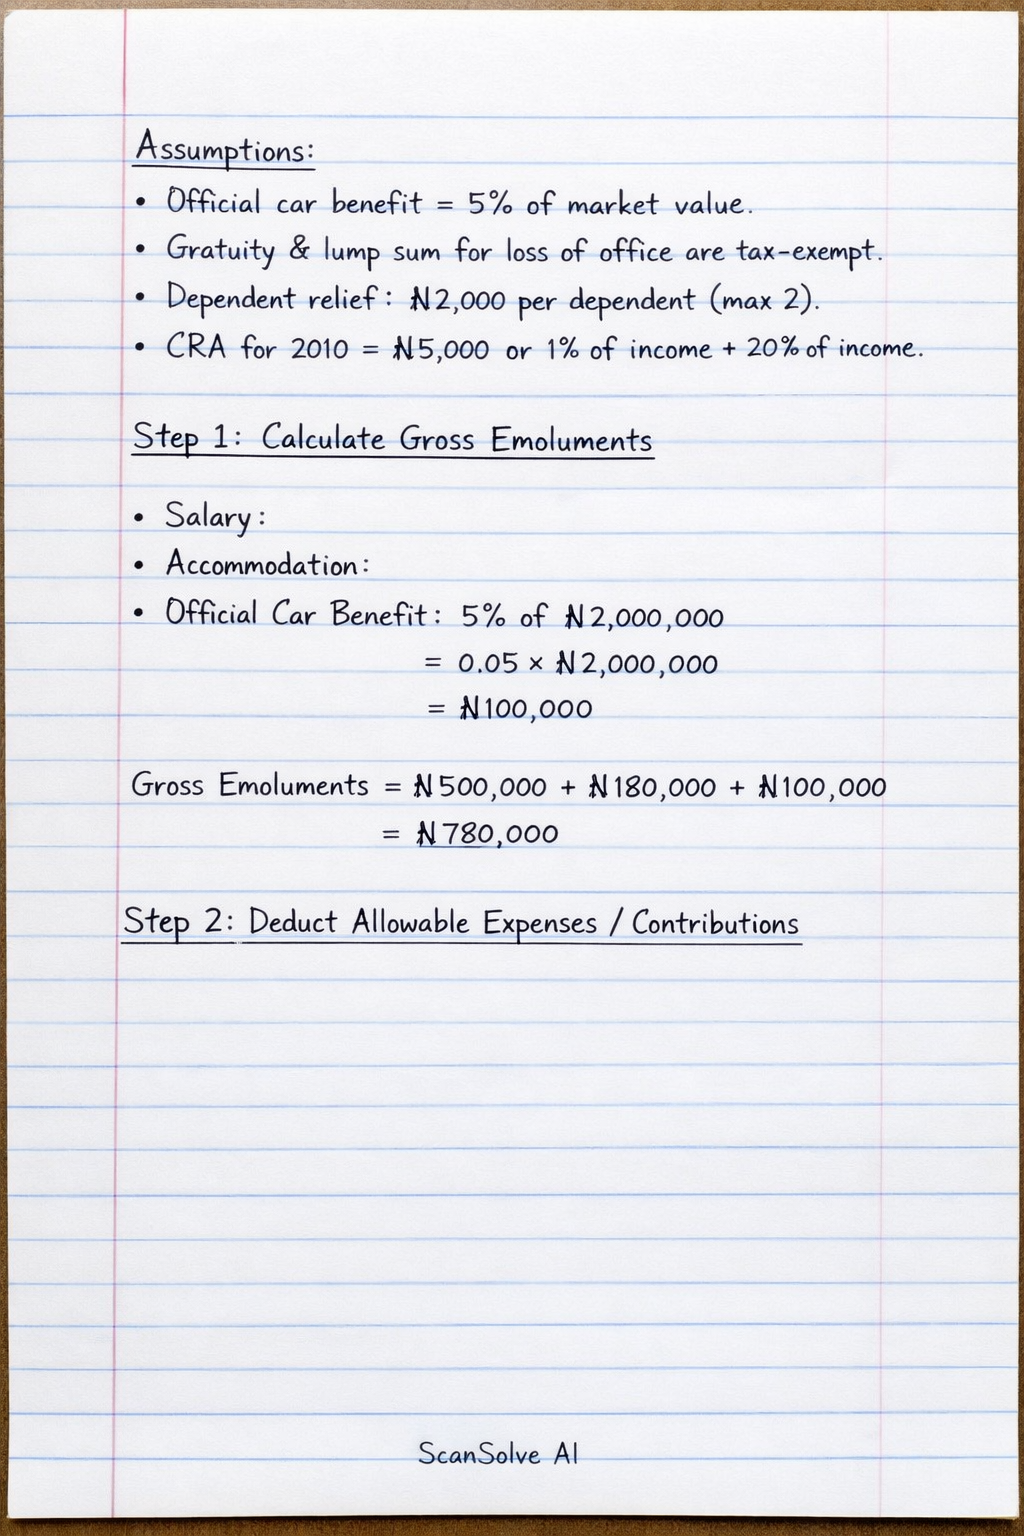 Assumptions:
• Official car benefit = 5% of market value.
• Gratuity & lump sum for loss of office are tax-exempt.
• Dependent relief: ₦2,000 per dependent (max 2).
• CRA for 2010 = ₦5,000 or 1% of income + 20% of income.
Step 1: Calculate Gross Emoluments
• Salary:
• Accommodation:
• Official Car Benefit: 5% of ₦2,000,000
= 0.05 × ₦2,000,000
= ₦100,000
Gross Emoluments = ₦500,000 + ₦180,000 + ₦100,000
= ₦780,000
Step 2: Deduct Allowable Expenses / Contributions
ScanSolve AI